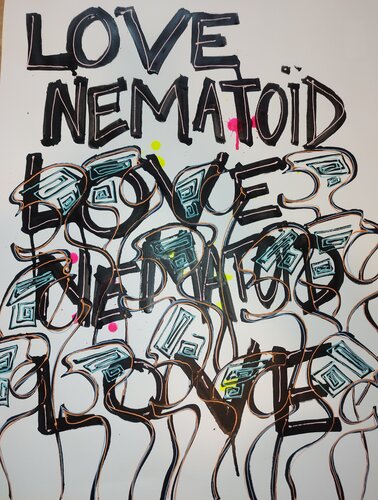 LOVE
NEMATOÏD
LOVE
NEMATOD
LOVE